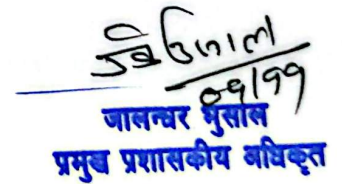 ०९/११
जालन्धर भुसाल
प्रमुख प्रशासकीय अधिकृत